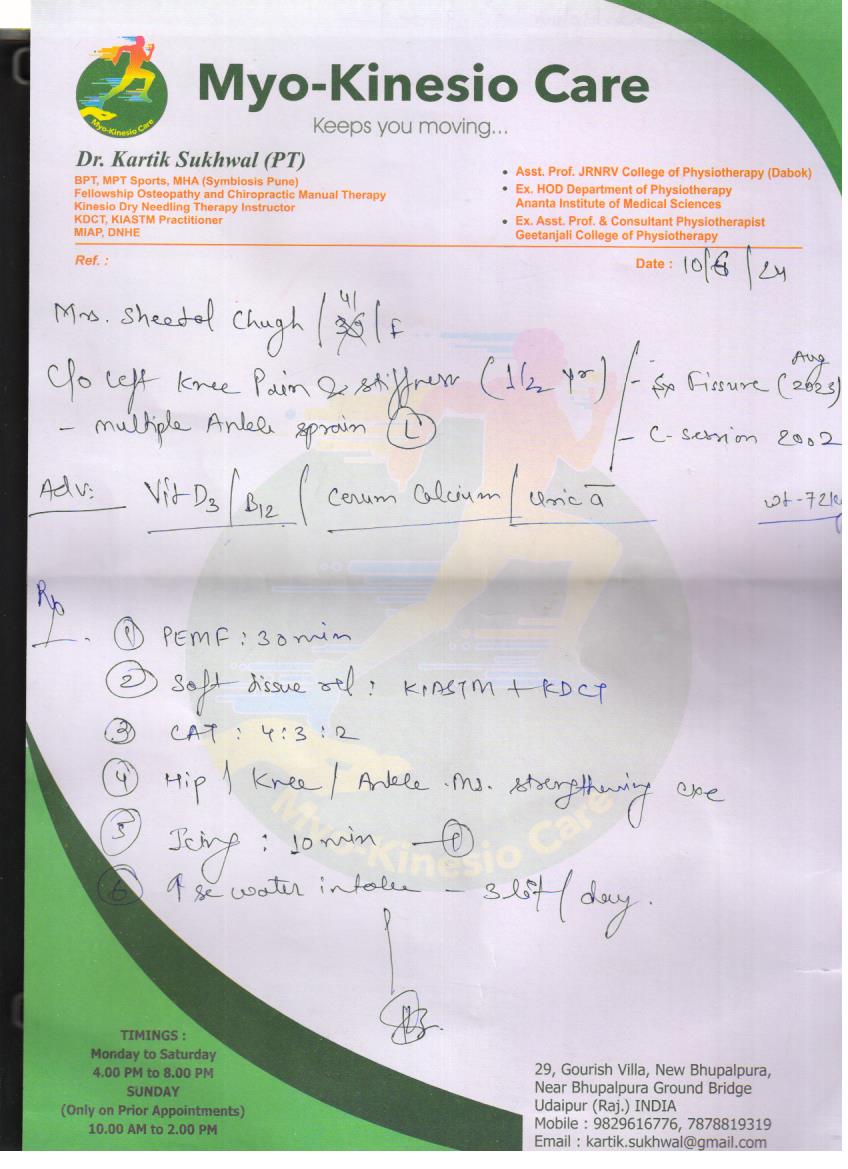 Myo-Kinesio Care
Myo-Kinesio Care
Keeps you moving...
Dr. Kartik Sukhwal (PT)
BPT, MPT Sports, MHA (Symbiosis Pune)
Fellowship Osteopathy and Chiropractic Manual Therapy
Kinesio Dry Needling Therapy Instructor
KDCT, KIASTM Practitioner
MIAP, DNHE
• Asst. Prof. JRNRV College of Physiotherapy (Dabok)
• Ex. HOD Department of Physiotherapy
Ananta Institute of Medical Sciences
• Ex. Asst. Prof. & Consultant Physiotherapist
Geetanjali College of Physiotherapy
Ref. :
Date : 10/6/24
Mrs. Sheetal Chugh / 41 / F
C/o Left Knee Pain & stiffness (1 1/2 yr) / - Fissure (Aug 2023)
- multiple Ankle sprain (L)
- C-session 2002
Adv: Vit D3 / B12 / Cerum Calcium / Uric a
wt-72
Rx
1 PEMF : 30 min
2 Soft tissue rel : KIASTM + KDCT
3 CAT : 4:3:2
4 Hip / Knee / Ankle Ms. strengthening exe
5 Icing : 10 min
6 water intake - 3 lit / day.
Myo-Kinesio Care
TIMINGS :
Monday to Saturday
4.00 PM to 8.00 PM
SUNDAY
(Only on Prior Appointments)
10.00 AM to 2.00 PM
29, Gourish Villa, New Bhupalpura,
Near Bhupalpura Ground Bridge
Udaipur (Raj.) INDIA
Mobile : 9829616776, 7878819319
Email : kartik.sukhwal@gmail.com